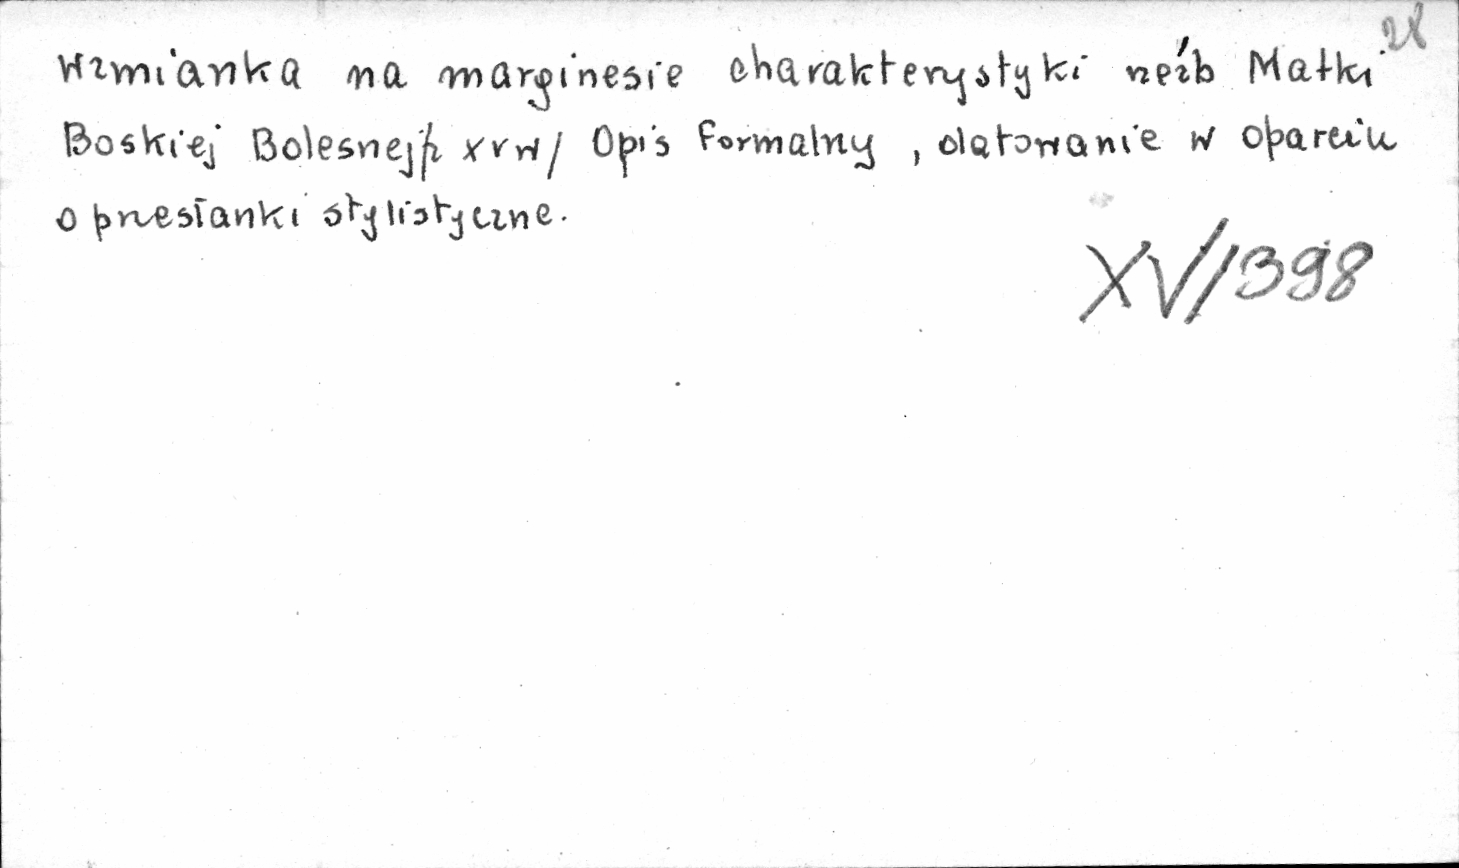 28
Wzmianka na marginesie charakterystyki rzeźb Matki
Boskiej Bolesnej/z XV w/ Opis formalny, datowanie w oparciu
o przesłanki stylistyczne.
XV/1398